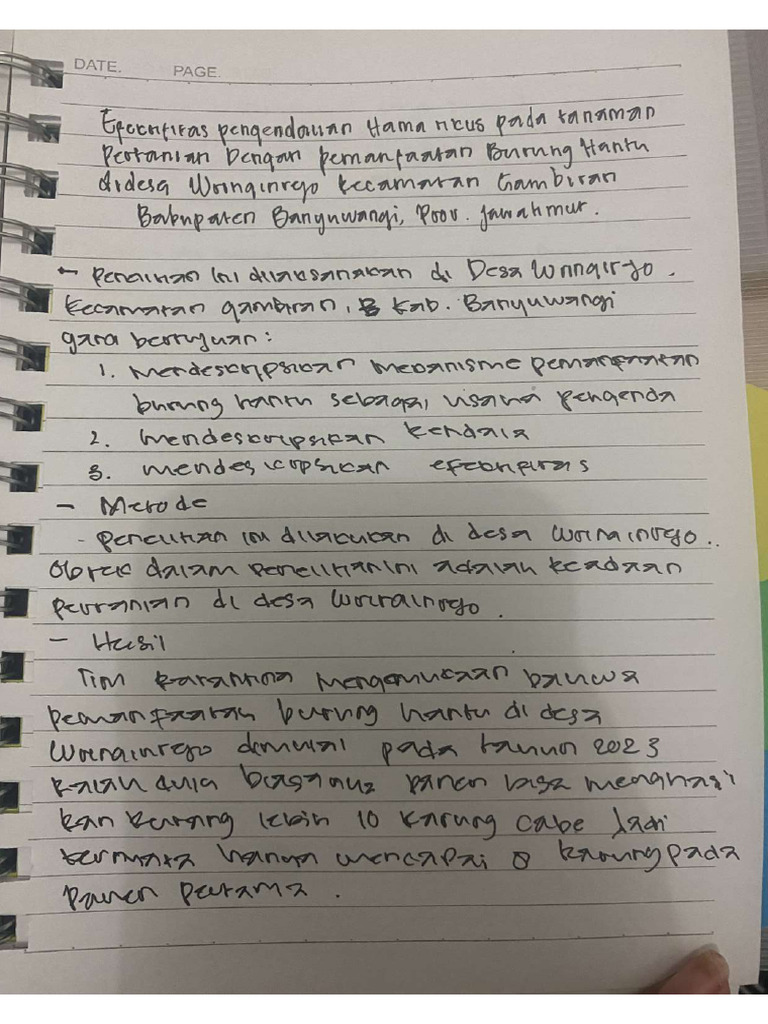 DATE. PAGE.
Efecktifitas pengendalian Hama tikus pada tanaman
Pertanian Dengan pemanfaatan Burung Hantu
didesa Wringinrejo kecamatan Gambiran
Babupaten Banyuwangi, Prov. Jawatimur.
- Penelitian ini dilaksanakan di Desa Wringirjo.
kecamatan gambiran, kab. Banyuwangi
gara bertujuan:
1. Mendeskripsikan mekanisme pemanfaatan
burung hantu sebagai usaha pengenda
2. Mendeskripsikan kendala
3. mendeskripsikan efektifitas
- Metode
- penelitian ini dilakukan di desa Wringinrejo..
Objrek dalam penelitian ini adalah keadaan
pertanian di desa Wringinrejo.
- Hasil
Tim karantina mengemukaan bahwa
pemanfaatan burung hantu di desa
Wringinrejo dimulai pada tahun 2023
kalau dula biasanya panen bisa menghasi
kan kurang lebih 10 karung cabe Jadi
ternyata hanya mencapai 8 karung pada
Panen pertama.